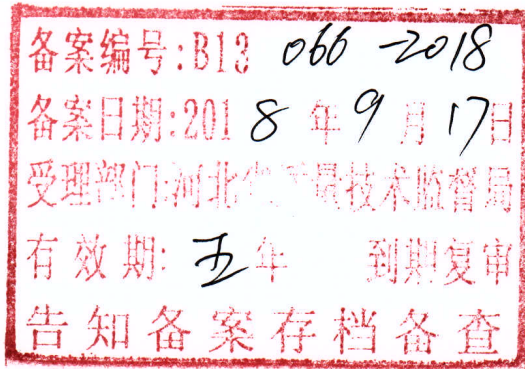 备案编号:B13 066-2018
备案日期:2018年9月17日
受理部门:河北省质量技术监督局
有效期:五年 到期复审
告知备案存档备查